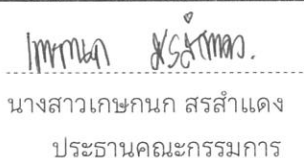 เกษกนก สรสำแดง.
นางสาวเกษกนก สรสำแดง
ประธานคณะกรรมการ